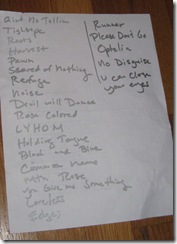 Aint No Tellin
Tightrope
Roots
Harvest
Pawn
Scared of Nothing
Refuge
Noise
Devil will Dance
Rose Colored
LYHOM
Holding Tongue
Black and Blue
Common name
with Rose
you Give me Something
Careless
Edges
Runner
Please Don't Go
Ophelia
No Disguise
U can Close
your eyes